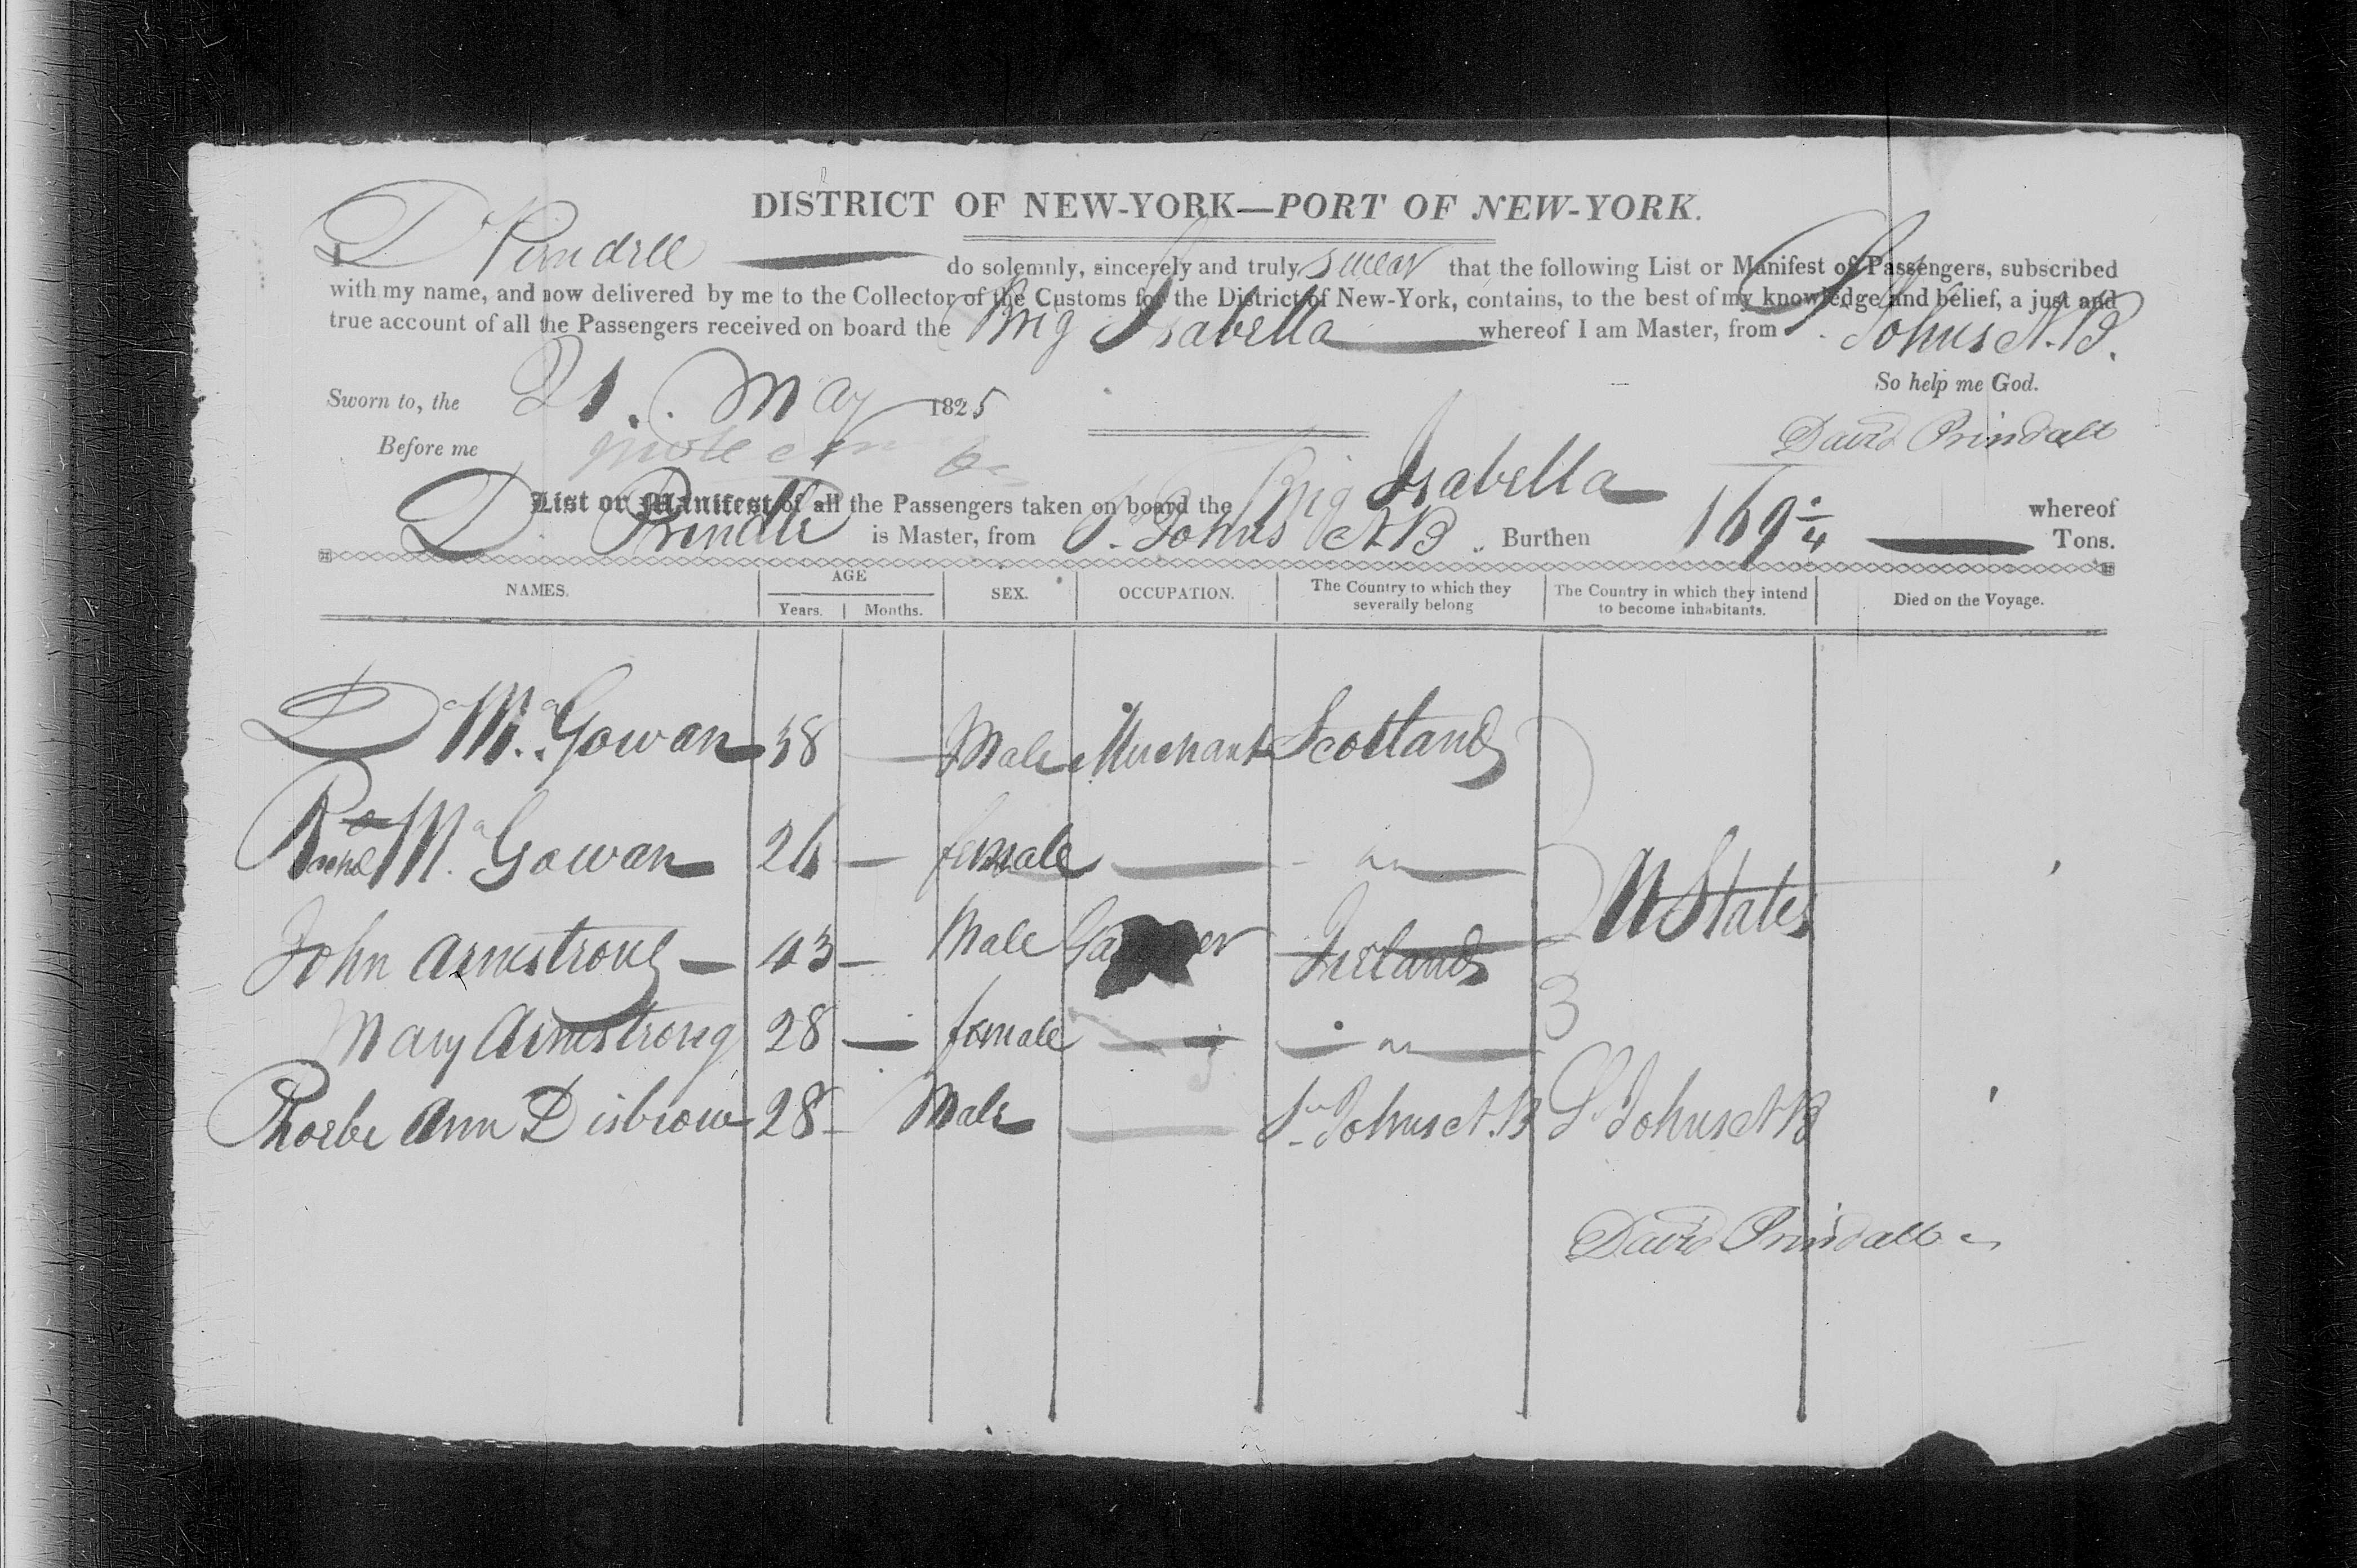 DISTRICT OF NEW-YORK—PORT OF NEW-YORK.
I D Prindell do solemnly, sincerely and truly swear that the following List or Manifest of Passengers, subscribed
with my name, and now delivered by me to the Collector of the Customs for the District of New-York, contains, to the best of my knowledge and belief, a just and
true account of all the Passengers received on board the Brig Isabella whereof I am Master, from St. Johns N.B.
So help me God.
Sworn to, the 21. May 1825
David Prindall
Before me
List or Manifest of all the Passengers taken on board the Brig Isabella whereof
D. Prindle is Master, from St. Johns N B. Burthen 169 1/4 Tons.
NAMES. AGE SEX. OCCUPATION. The Country to which they severally belong The Country in which they intend to become inhabitants. Died on the Voyage.
Years. Months.
D McGowan 38 — Male Merchant Scotland
McGowan 26 — female — —
U States
John Armstrong — 43 — Male Ireland
Mary Armstrong 28 — female — —
Phoebe Ann Disbrow 28 — Male — St Johns N.B St Johns N B
David Prindall